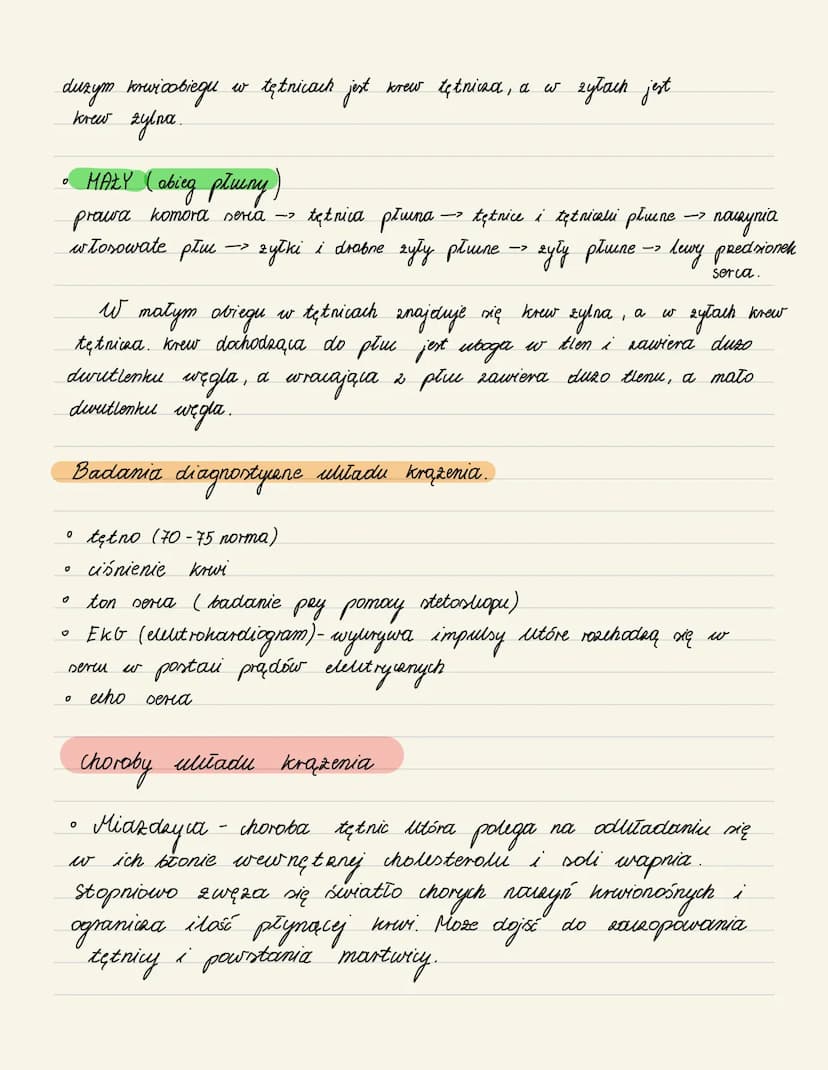 dużym krwioobiegu w tętnicach jest krew tętnicza, a w żyłach jest
krew żylna.
• MAŁY (obieg płucny)
prawa komora serca —> tętnica płucna —> tętnice i tętniczki płucne —> naczynia
włosowate płuc —> żyłki i drobne żyły płucne —> żyły płucne —> lewy przedsionek
serca.
W małym obiegu w tętnicach znajduje się krew żylna, a w żyłach krew
tętnicza. krew dochodząca do płuc jest uboga w tlen i zawiera dużo
dwutlenku węgla, a wracająca z płuc zawiera dużo tlenu, a mało
dwutlenku węgla.
Badania diagnostyczne układu krążenia.
• tętno (70-75 norma)
• ciśnienie krwi
• ton serca (badanie przy pomocy stetoskopu)
• EKG (elektrokardiogram)- wykrywa impulsy które rozchodzą się w
sercu w postaci prądów elektrycznych
• echo serca
Choroby układu krążenia
• Miażdżyca - choroba tętnic która polega na odkładaniu się
w ich błonie wewnętrznej cholesterolu i soli wapnia.
Stopniowo zwęża się światło chorych naczyń krwionośnych i
ogranicza ilość płynącej krwi. Może dojść do zaczopowania
tętnicy i powstania martwicy.